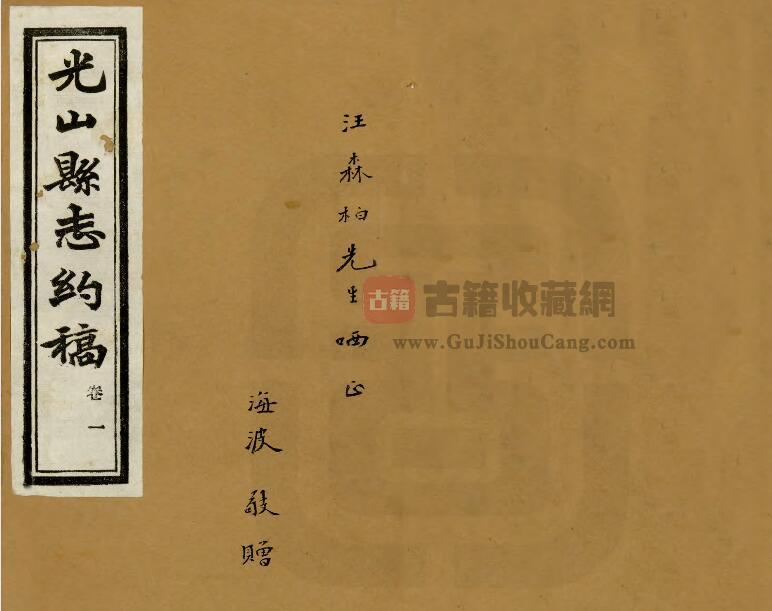 光山縣志約稿
卷一
汪森柏先生哂正
海波敬贈
古籍 古籍收藏網
www.GuJiShouCang.com